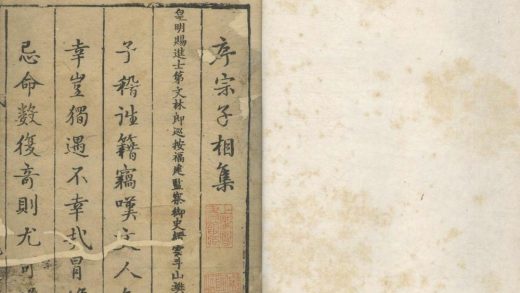 序宗子相集
皇明賜進士第文林郎巡按福建監察御史 雲斗山樊
予稽誰籍竊嘆文人
幸豈獨遇不幸哉冒
忌命数復奇則尤可